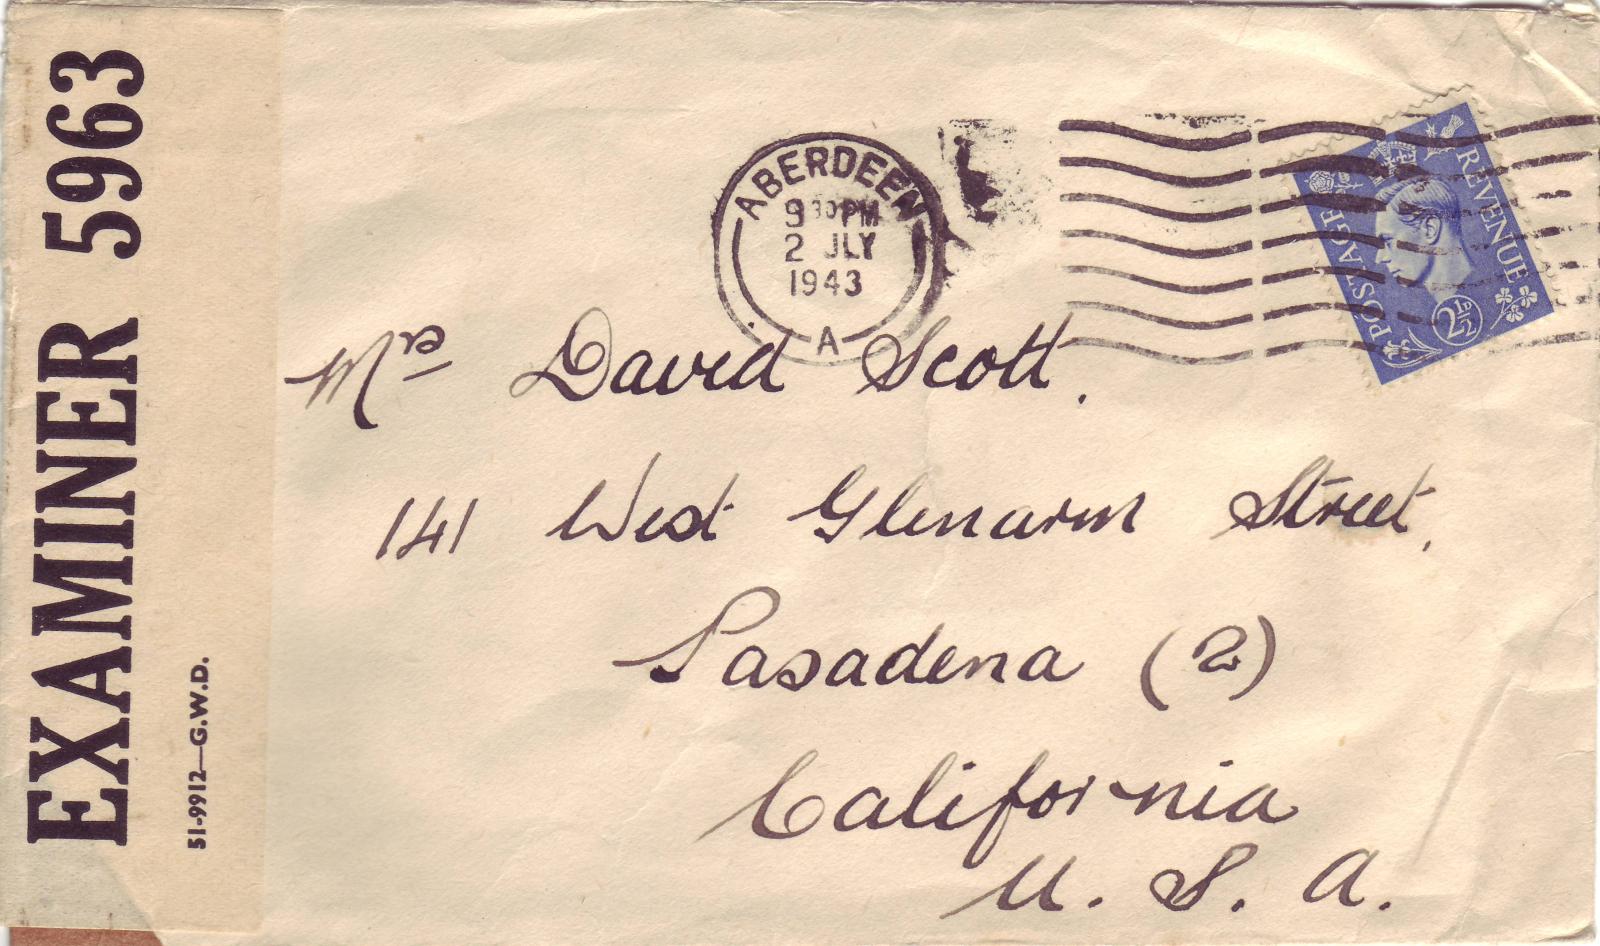 EXAMINER 5963
51-9912—G.W.D.
ABERDEEN
9 30 PM
2 JLY
1943
A
POSTAGE REVENUE
2½D
Mrs David Scott.
141 West Glenarm Street,
Pasadena (2)
California
U. S. A.